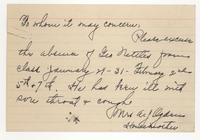 To whom it may concern.
Please excuse
the absence of Geo Nettles from
class January 29-31- February 2nd
5th, 7th. He has been ill with
sore throat & cough
Mrs